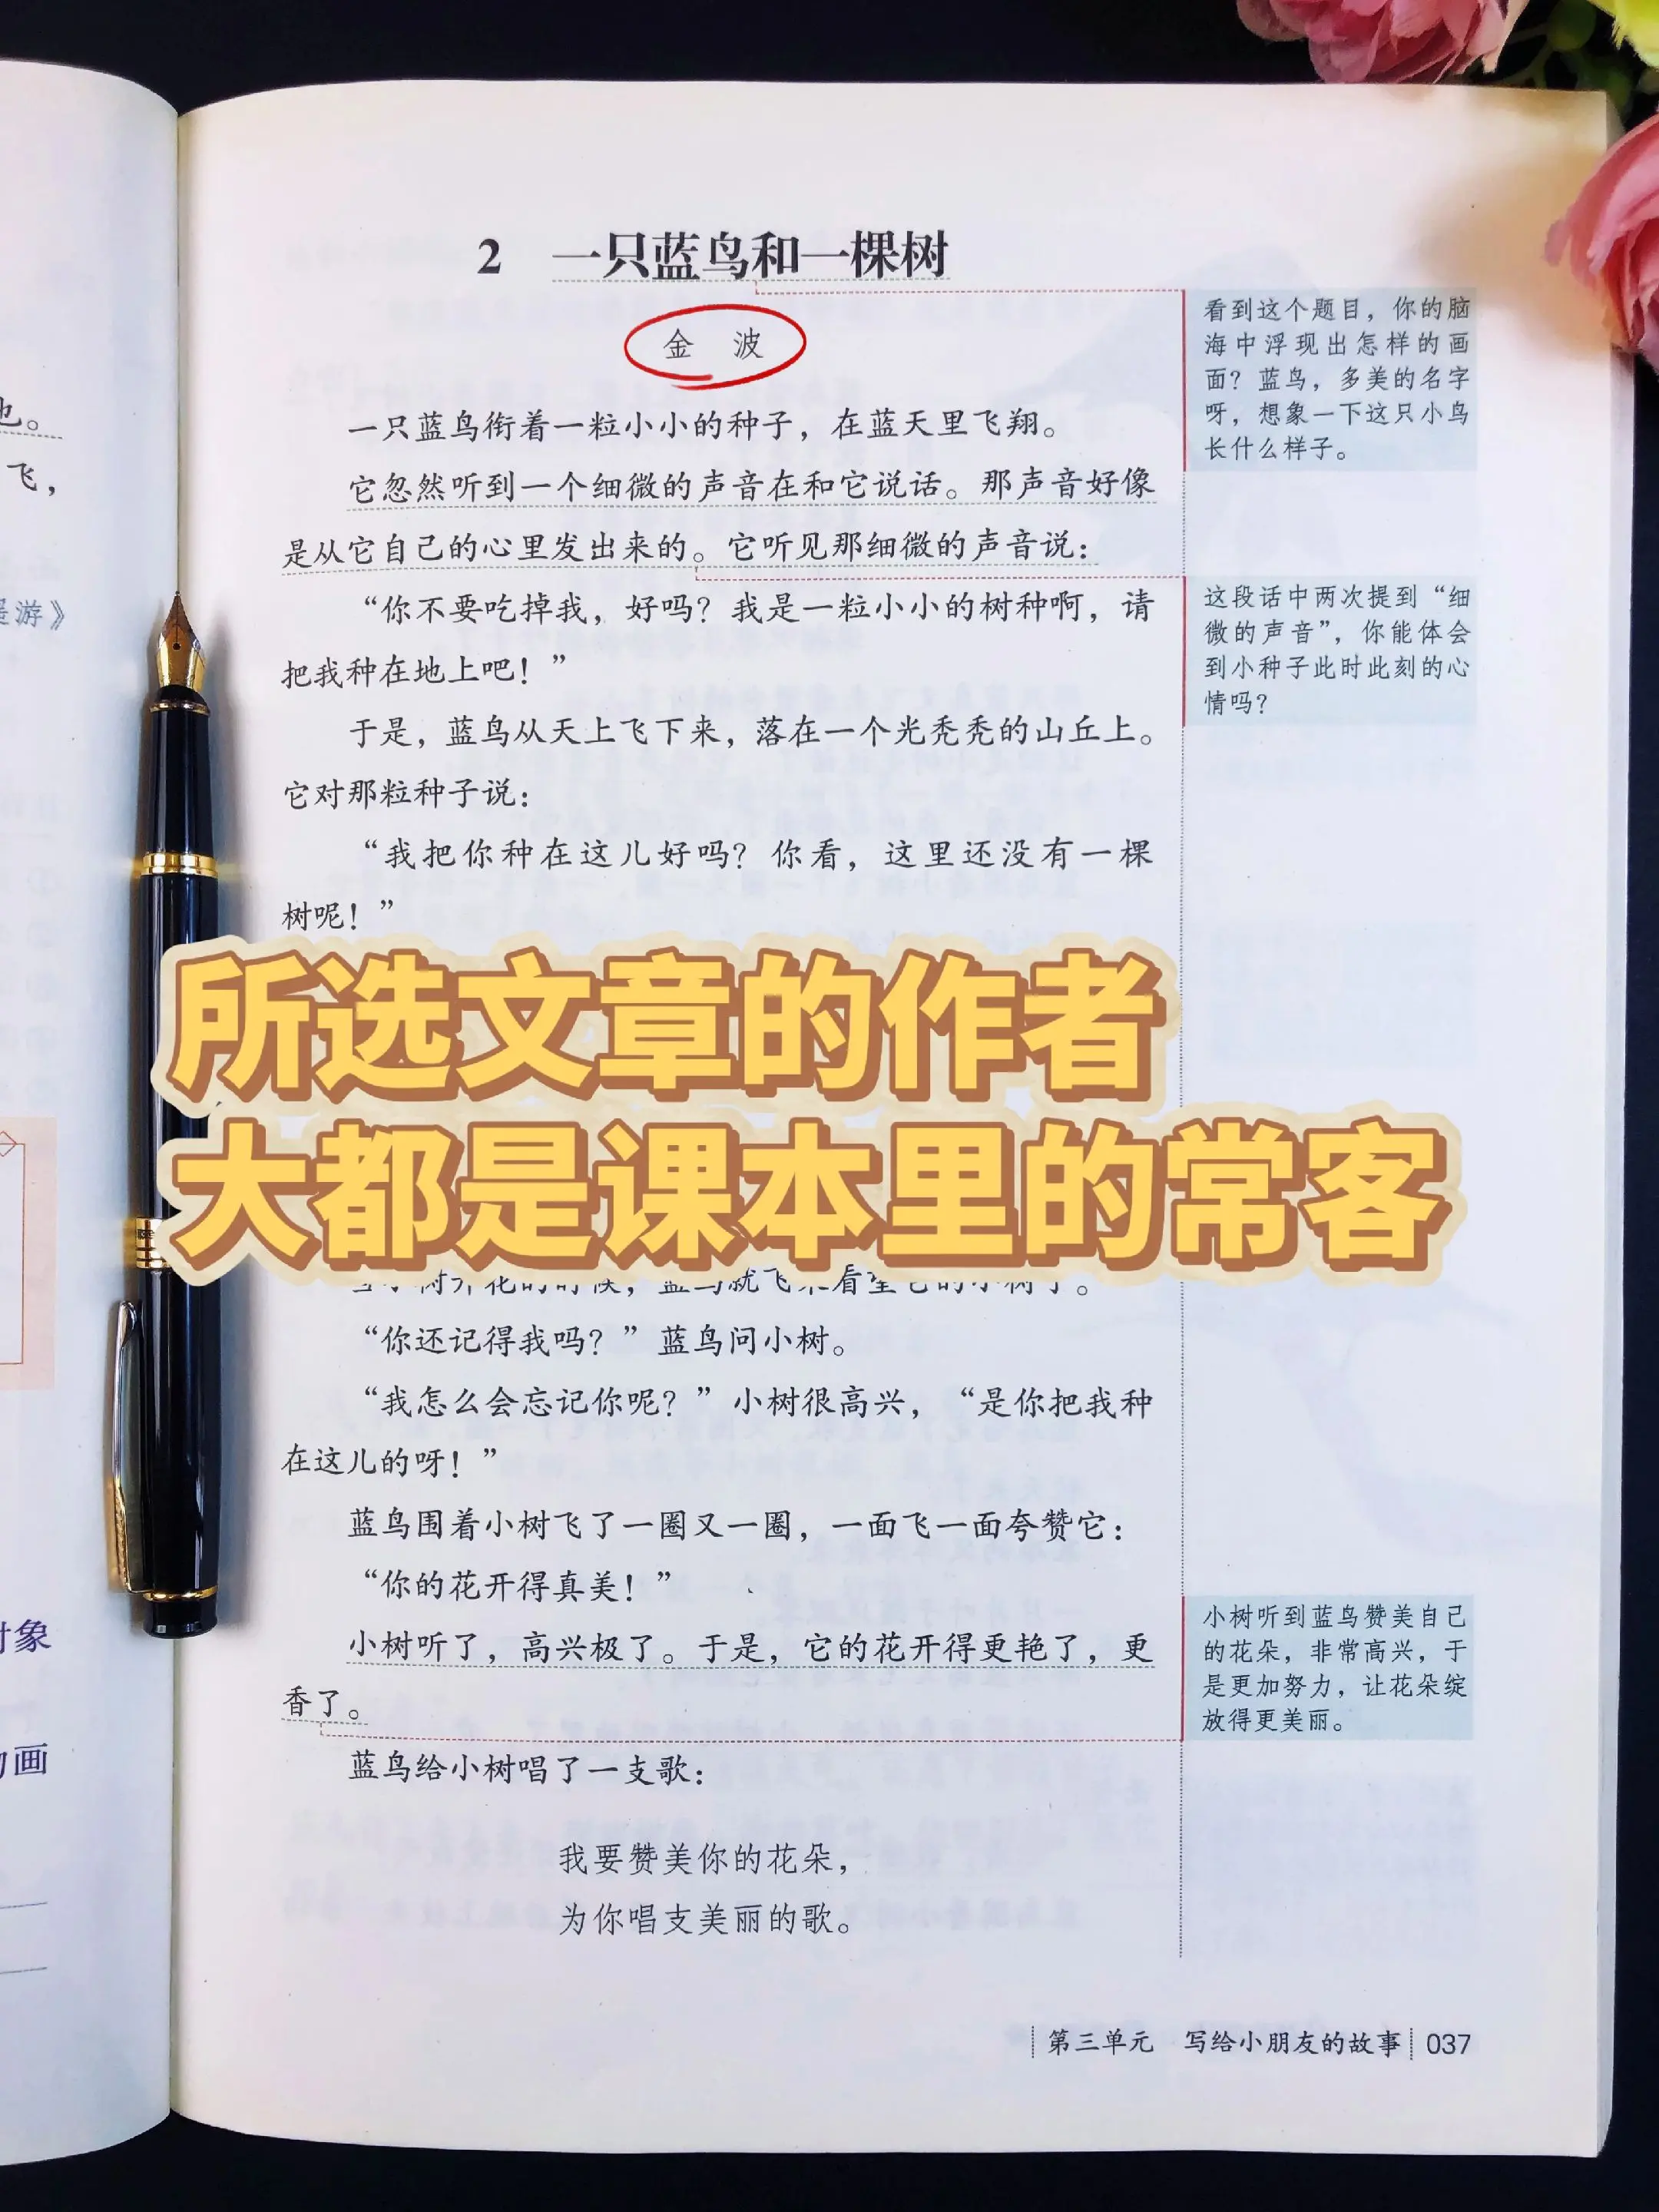 也。
飞，
游》
对象
画
2 一只蓝鸟和一棵树
金 波
一只蓝鸟衔着一粒小小的种子，在蓝天里飞翔。
它忽然听到一个细微的声音在和它说话。那声音好像
是从它自己的心里发出来的。它听见那细微的声音说：
“你不要吃掉我，好吗？我是一粒小小的树种啊，请
把我种在地上吧！”
于是，蓝鸟从天上飞下来，落在一个光秃秃的山丘上。
它对那粒种子说：
“我把你种在这儿好吗？你看，这里还没有一棵
树呢！”
所选文章的作者
大都是课本里的常客
小树开花的时候，蓝鸟就飞来看望它的小树了。
“你还记得我吗？”蓝鸟问小树。
“我怎么会忘记你呢？”小树很高兴，“是你把我种
在这儿的呀！”
蓝鸟围着小树飞了一圈又一圈，一面飞一面夸赞它：
“你的花开得真美！”
小树听了，高兴极了。于是，它的花开得更艳了，更
香了。
蓝鸟给小树唱了一支歌：
我要赞美你的花朵，
为你唱支美丽的歌。
看到这个题目，你的脑
海中浮现出怎样的画
面？蓝鸟，多美的名字
呀，想象一下这只小鸟
长什么样子。
这段话中两次提到“细
微的声音”，你能体会
到小种子此时此刻的心
情吗？
小树听到蓝鸟赞美自己
的花朵，非常高兴，于
是更加努力，让花朵绽
放得更美丽。
第三单元 写给小朋友的故事 037